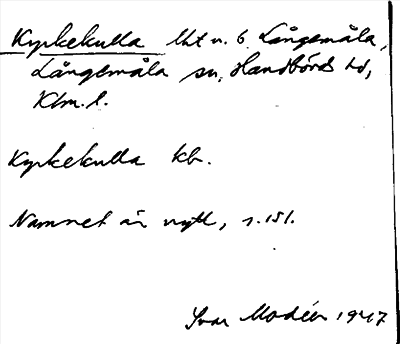 Kyrkekulla lht u. 6 Långemåla,
Långemåla sn, Handbörds hd,
Klm. l.
Kyrkekulla kb.
Namnet är nytt, s. 151.
Ivar Modéer 1947